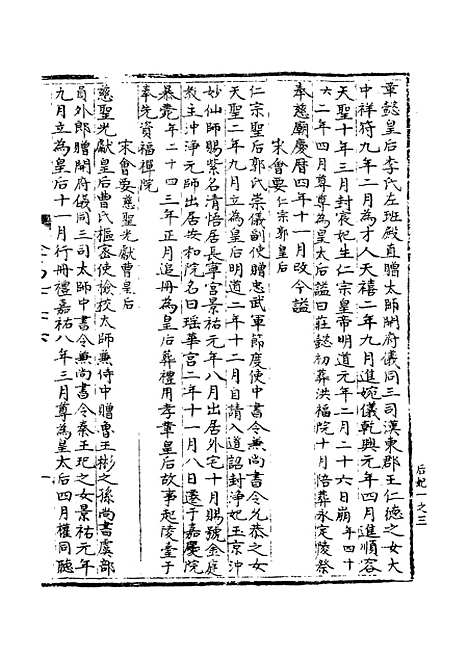 章懿皇后李氏左班殿直贈太師開府儀同三司漢東郡王仁德之女大
中祥符九年二月為才人天禧二年九月進婉儀乾興元年四月進順容
天聖十年三月封宸妃生仁宗皇帝明道元年二月二十六日崩年四十
六二年四月尊尊為皇太后謚曰莊懿初葬洪福院十月陪葬永定陵祭
奉慈廟慶曆四年十一月改今謚
宋會要 仁宗郭皇后
仁宗聖后郭氏崇儀副使贈忠武軍節度使中書令兼尚書令允恭之女
天聖二年九月立為皇后明道二年十二月自請入道詔封淨妃玉京沖
妙仙師賜紫名清悟居長寧宮景祐元年八月出居外宅十月賜號金庭
教主沖淨元師出居安和院名曰瑤華宮二年十一月八日遷于嘉慶院
暴薨年二十四三年正月追冊為皇后葬禮用孝章皇后故事起陵臺于
奉先資福禪院
宋會要 慈聖光獻曹皇后
慈聖光獻皇后曹氏樞密使檢挍太師兼侍中贈魯王彬之孫尚書虞部
員外郎贈開府儀同三司太師中書令兼尚書令秦王玘之女景祐元年
九月立為皇后十一月行冊禮嘉祐八年三月尊為皇太后四月權同聽
后妃一之三